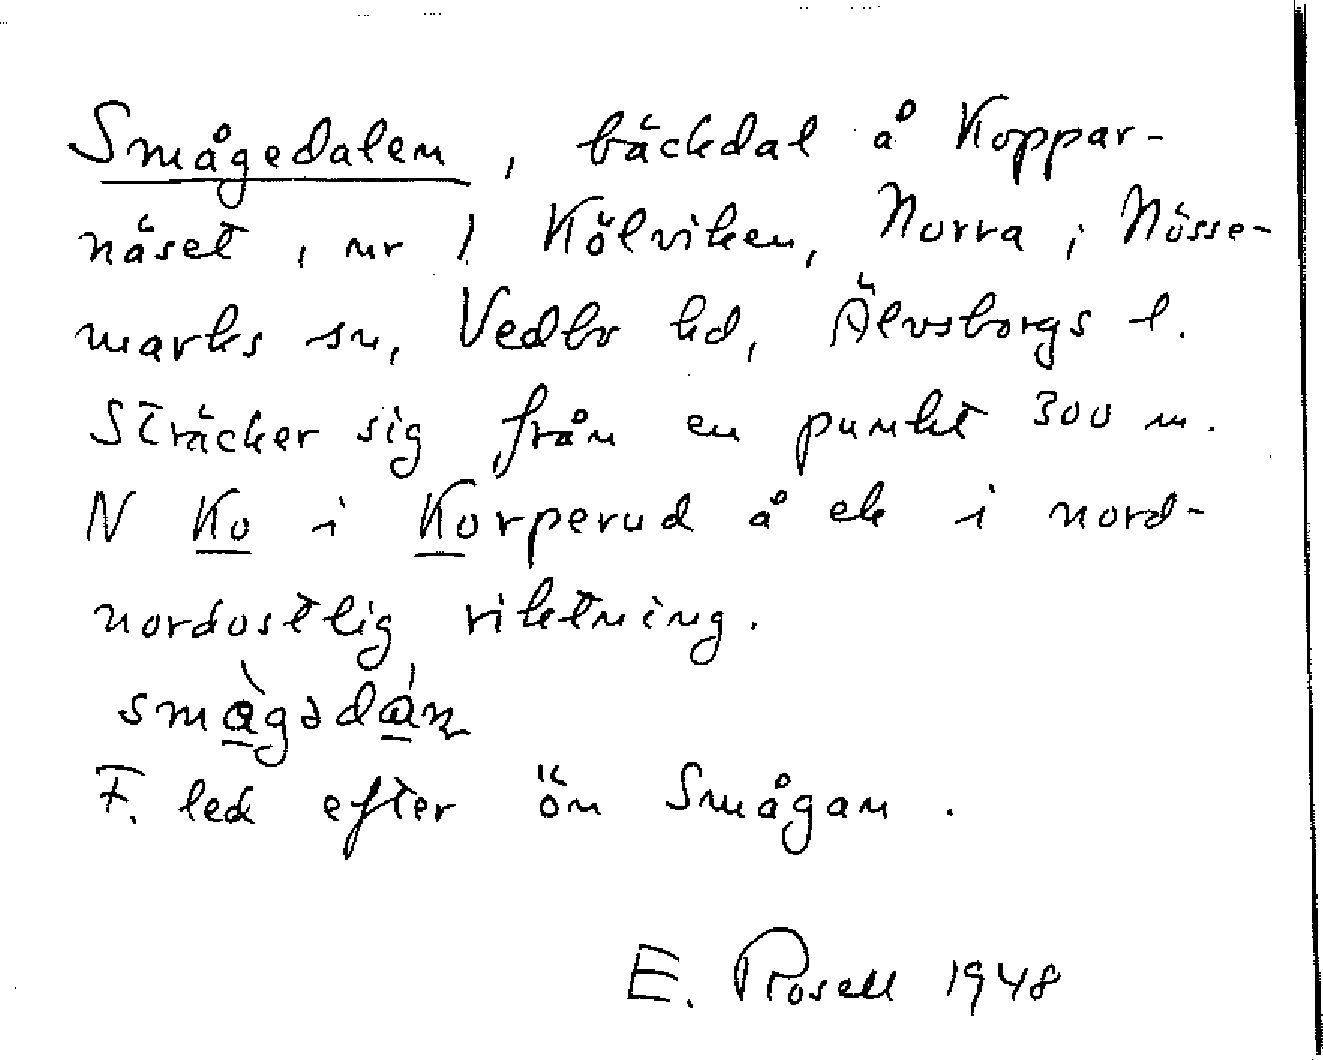 Smågedalen, bäckdal å Koppar-
näset, nr 1 Kölviken, Norra, Nösse-
marks sn, Vedbo hd, Älvsborgs l.
Sträcker sig från en punkt 300 m.
N Ko i Korperud å ek i nord-
nordostlig riktning.
F. led efter ön Smågan.
E. Rosell 1948